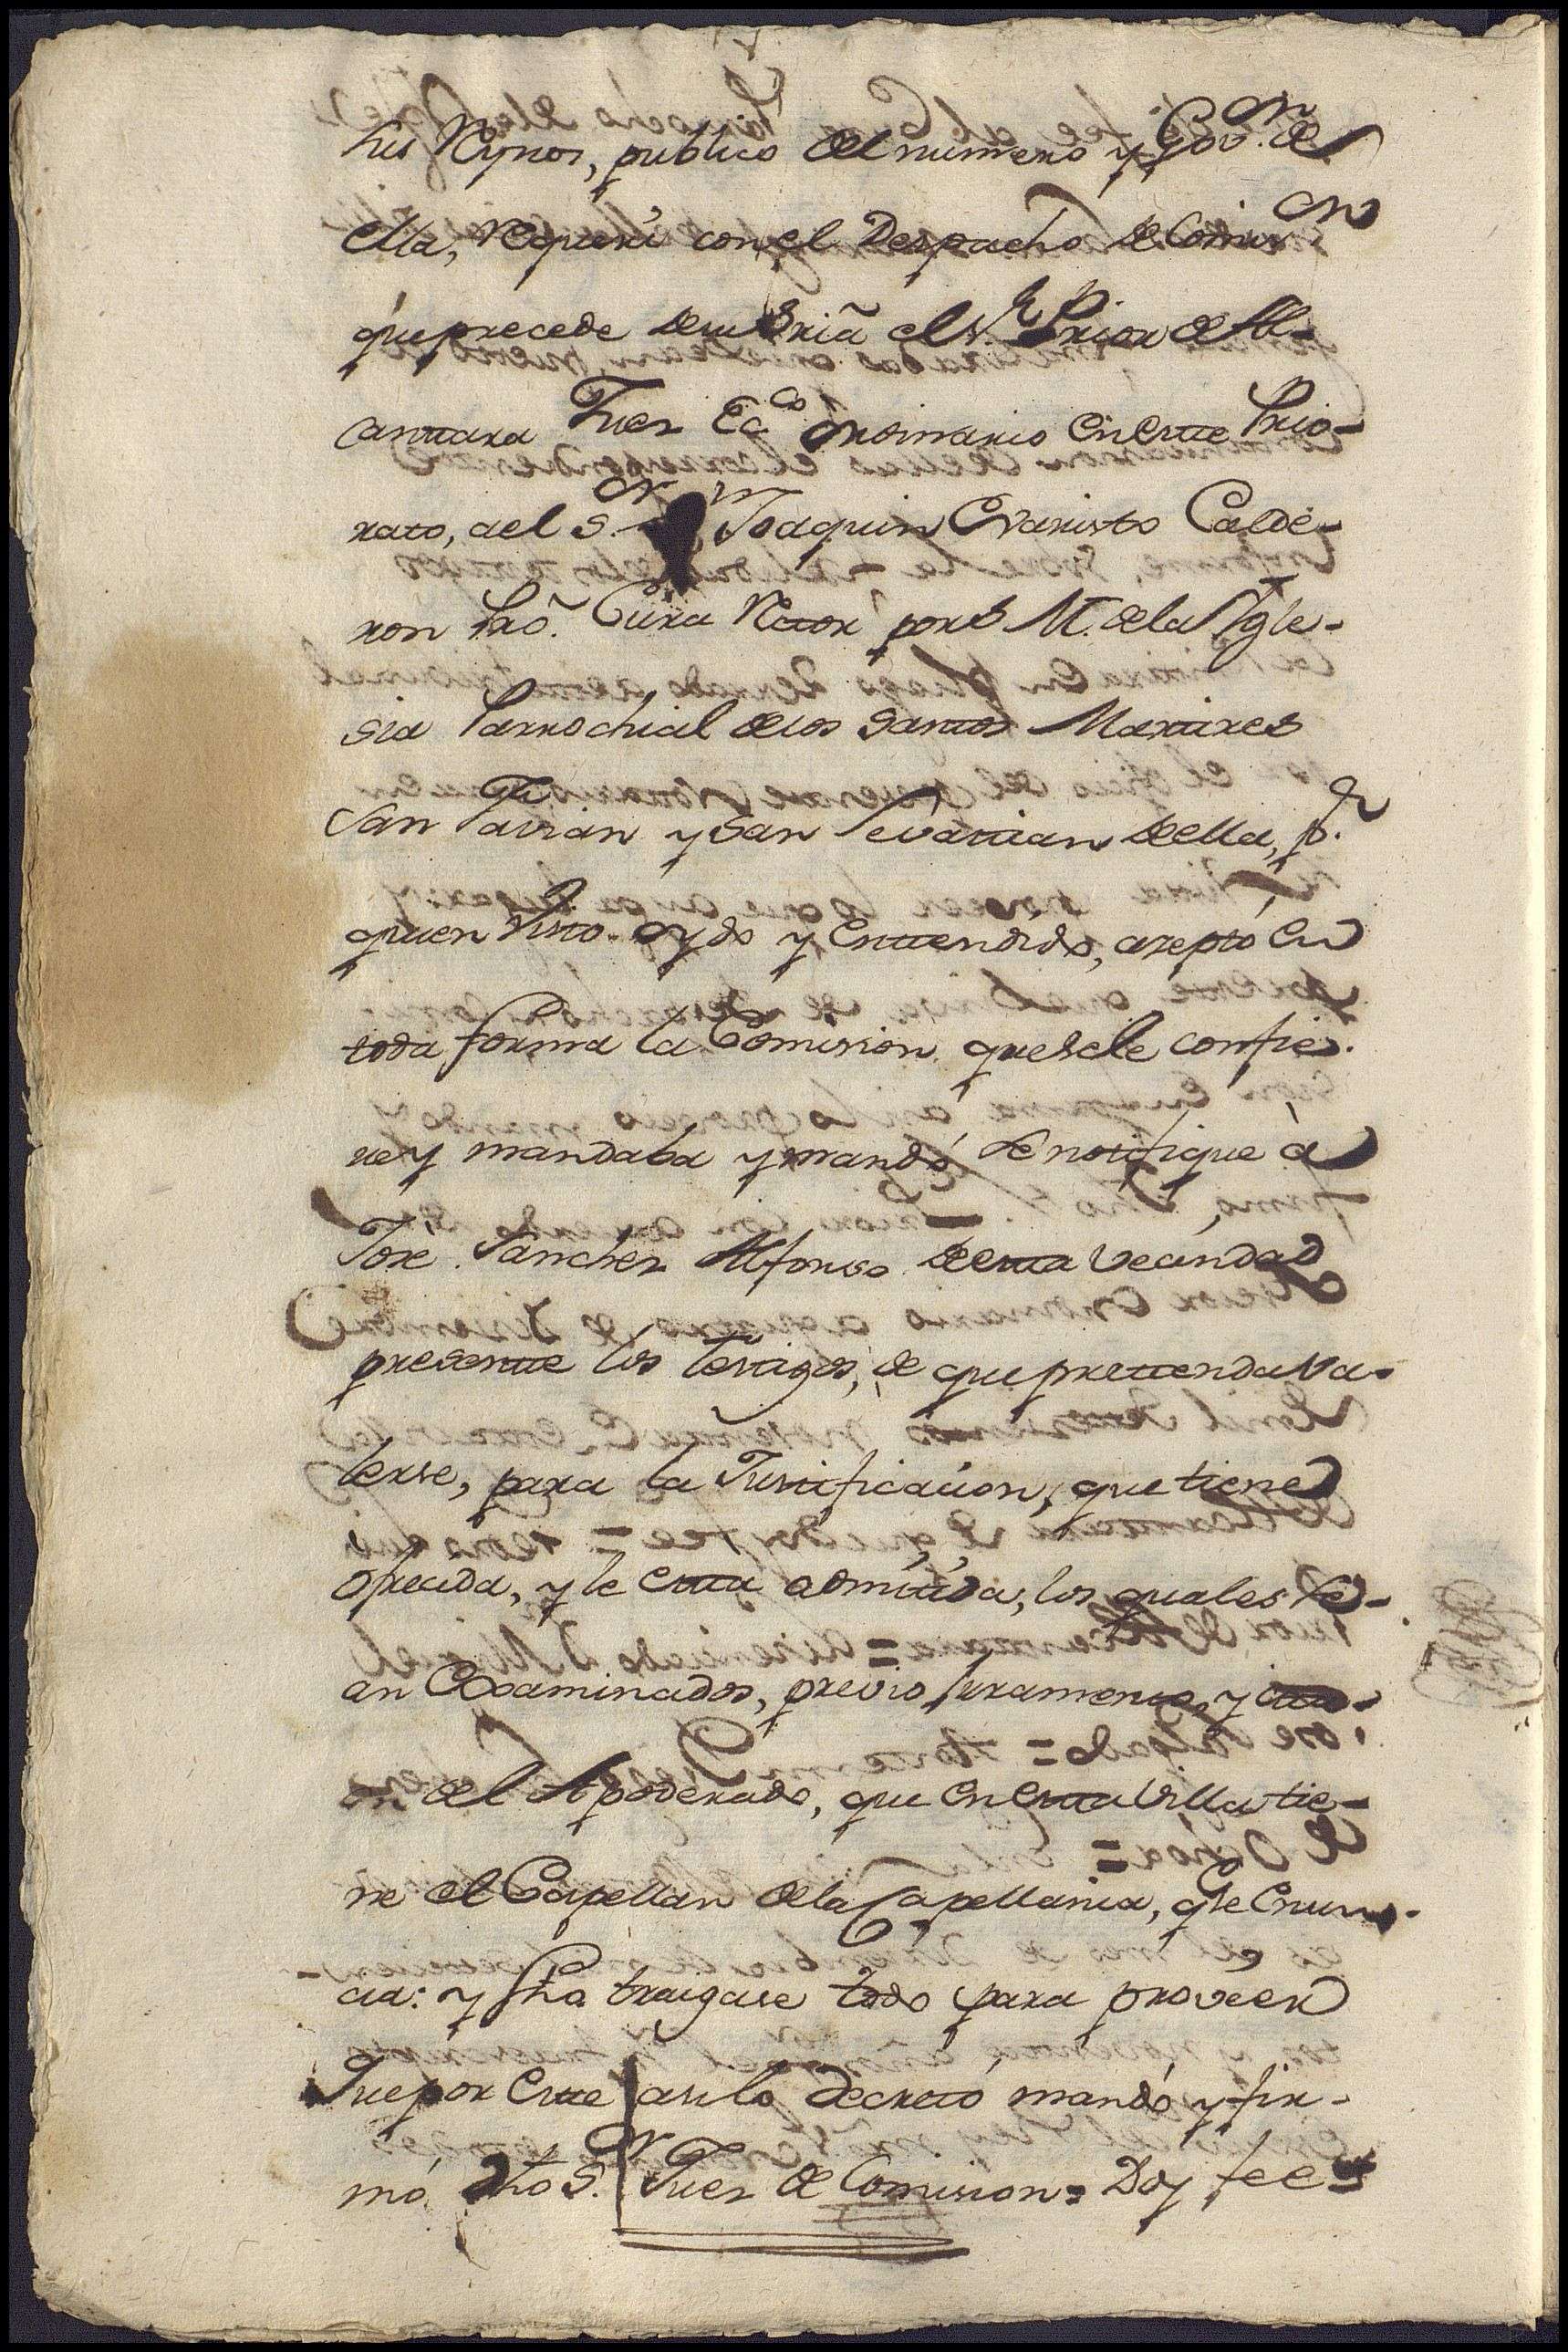 sus Reynos, publico del numero y Gov.on de
ella, requeri con el Despacho de Comis.on
que precede de su Sria el S.r Prior de Al-
cantara Juez Ecco Ordinario en este Prio-
rato, al S.or Joaquin Evaristo Calde-
ron Pro. Cura Rector por S. M. de la Igle-
sia Parrochial de los Santos Martires
San Favian y San Sevastian de ella, p.r
quien visto oydo y entendido, azeptó en
toda forma la Comision que se le confie-
re y mandaba y mandó se notifique á
José Sanchez Alfonso de esta vecindad
presente los testigos, de que pretenda va-
lerse, para la Justificacion, que tiene
ofrecida, y le esta admitida, los quales se-
an Examinados, previo Juramento, y cita-
n del Apoderado, que en esta villa tie-
ne el Capellan de la Capellania, q.e se Enun-
cia: y fho traigase todo para proveer
Que por este asi lo decretó mandó y fir-
mó dho S.or Juez de Comision = Doy fee =